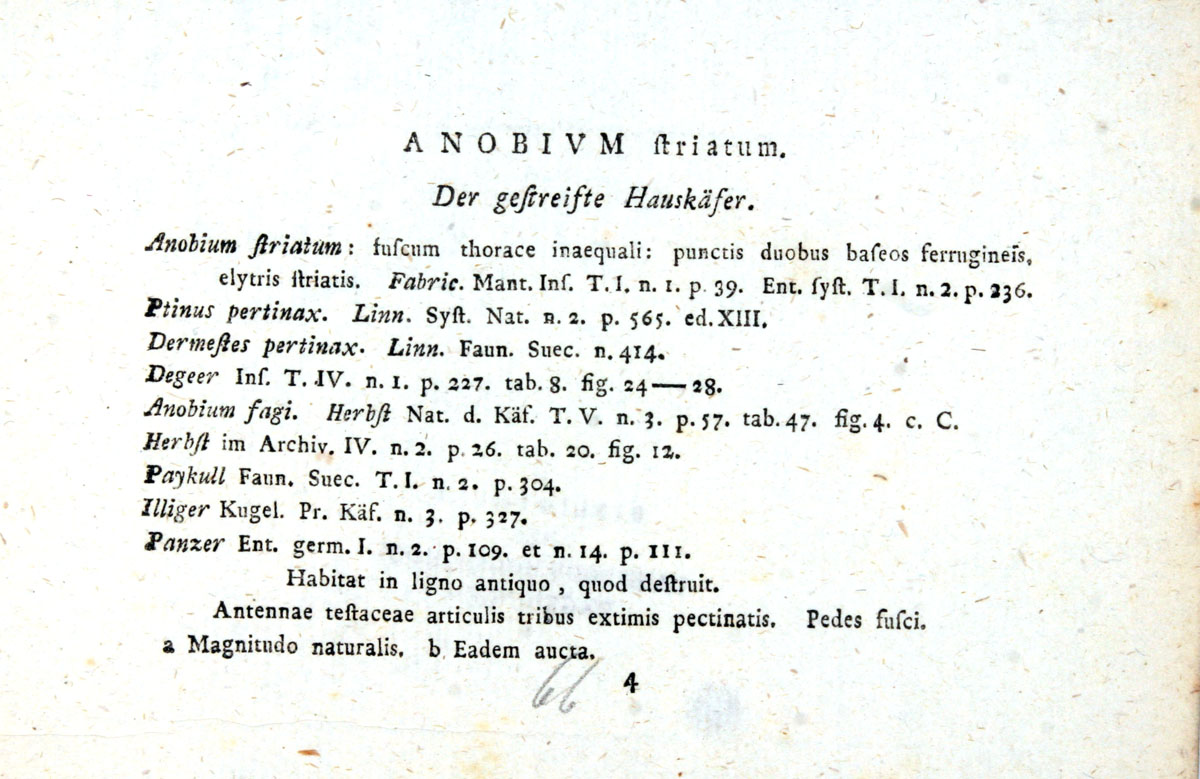 ANOBIVM ſtriatum.
Der geſtreifte Hauskäfer.
Anobium ſtriatum: fuſcum thorace inaequali: punctis duobus baſeos ferrugineis,
elytris ſtriatis. Fabric. Mant. Inſ. T. I. n. 1. p. 39. Ent. ſyſt. T. I. n. 2. p. 236.
Ptinus pertinax. Linn. Syſt. Nat. n. 2. p. 565. ed. XIII.
Dermeſtes pertinax. Linn. Faun. Suec. n. 414.
Degeer Inſ. T. IV. n. 1. p. 227. tab. 8. fig. 24—28.
Anobium fagi. Herbſt Nat. d. Käf. T. V. n. 3. p. 57. tab. 47. fig. 4. c. C.
Herbſt im Archiv. IV. n. 2. p. 26. tab. 20. fig. 12.
Paykull Faun. Suec. T. I. n. 2. p. 304.
Illiger Kugel. Pr. Käf. n. 3. p. 327.
Panzer Ent. germ. I. n. 2. p. 109. et n. 14. p. 111.
Habitat in ligno antiquo, quod deſtruit.
Antennae teſtaceae articulis tribus extimis pectinatis. Pedes fuſci.
a Magnitudo naturalis. b Eadem aucta.
66 4